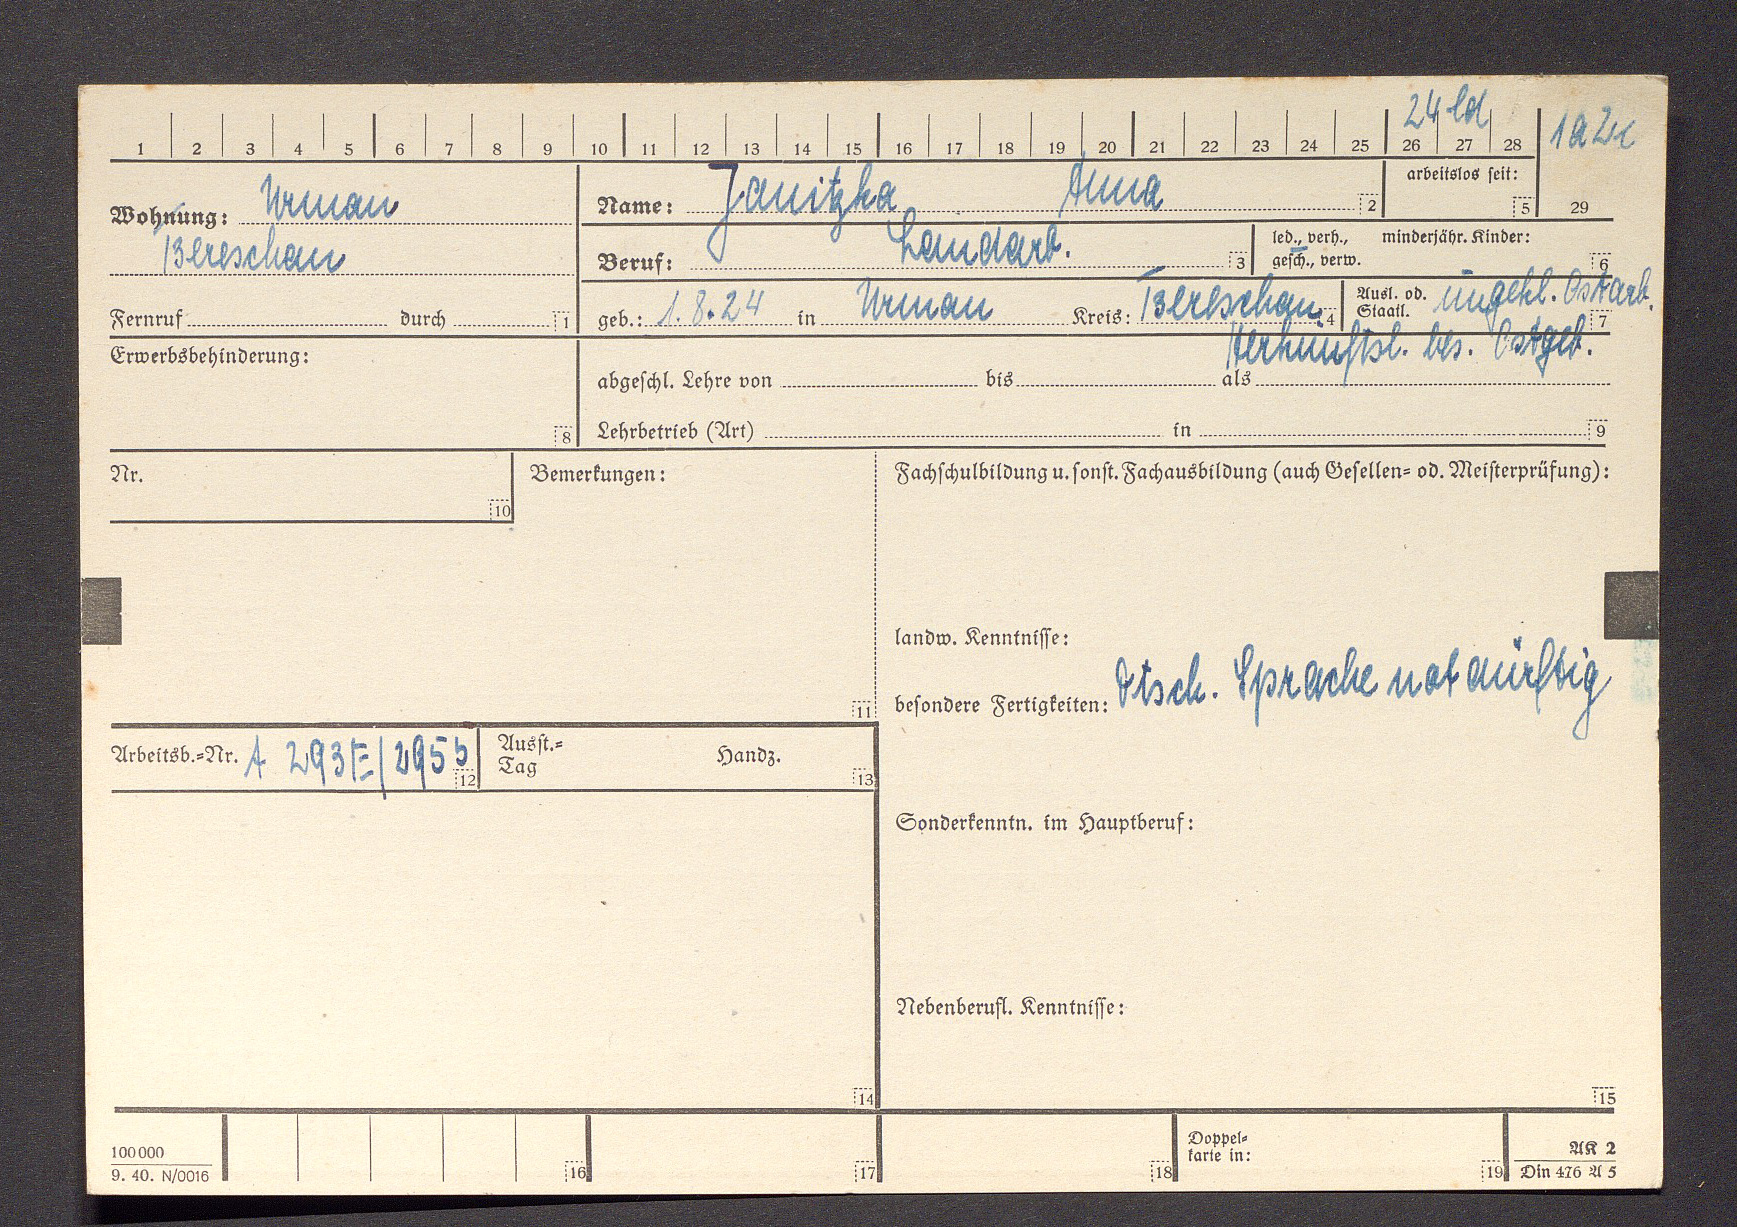 24 ld
1a 2c
1 2 3 4 5 6 7 8 9 10 11 12 13 14 15 16 17 18 19 20 21 22 23 24 25 26 27 28
Wohnung: Urman
Bereschan
Fernruf durch 1
Name: Janitzka Anna 2
arbeitslos seit:
5 29
Beruf: Landarb. 3
led., verh., minderjähr. Kinder:
gesch., verw. 6
geb.: 1.8.24 in Urman Kreis: Bereschan 4
Ausl. od. ungekl. Ostarb.
Staatl. 7
Herkunftsl. bes. Ostgeb.
Erwerbsbehinderung:
8
abgeschl. Lehre von bis als
Lehrbetrieb (Art) in 9
Nr.
10
Bemerkungen:
11
Fachschulbildung u. sonst. Fachausbildung (auch Gesellen- od. Meisterprüfung):
landw. Kenntnisse:
besondere Fertigkeiten: Dtsch. Sprache notdürftig
Arbeitsb.-Nr. A 293 E/295 b 12
Ausst.-
Tag
Handz.
13
Sonderkenntn. im Hauptberuf:
Nebenberufl. Kenntnisse:
14
15
100000
9. 40. N/0016
16
17
18
Doppel-
karte in:
19
AK 2
Din 476 A 5